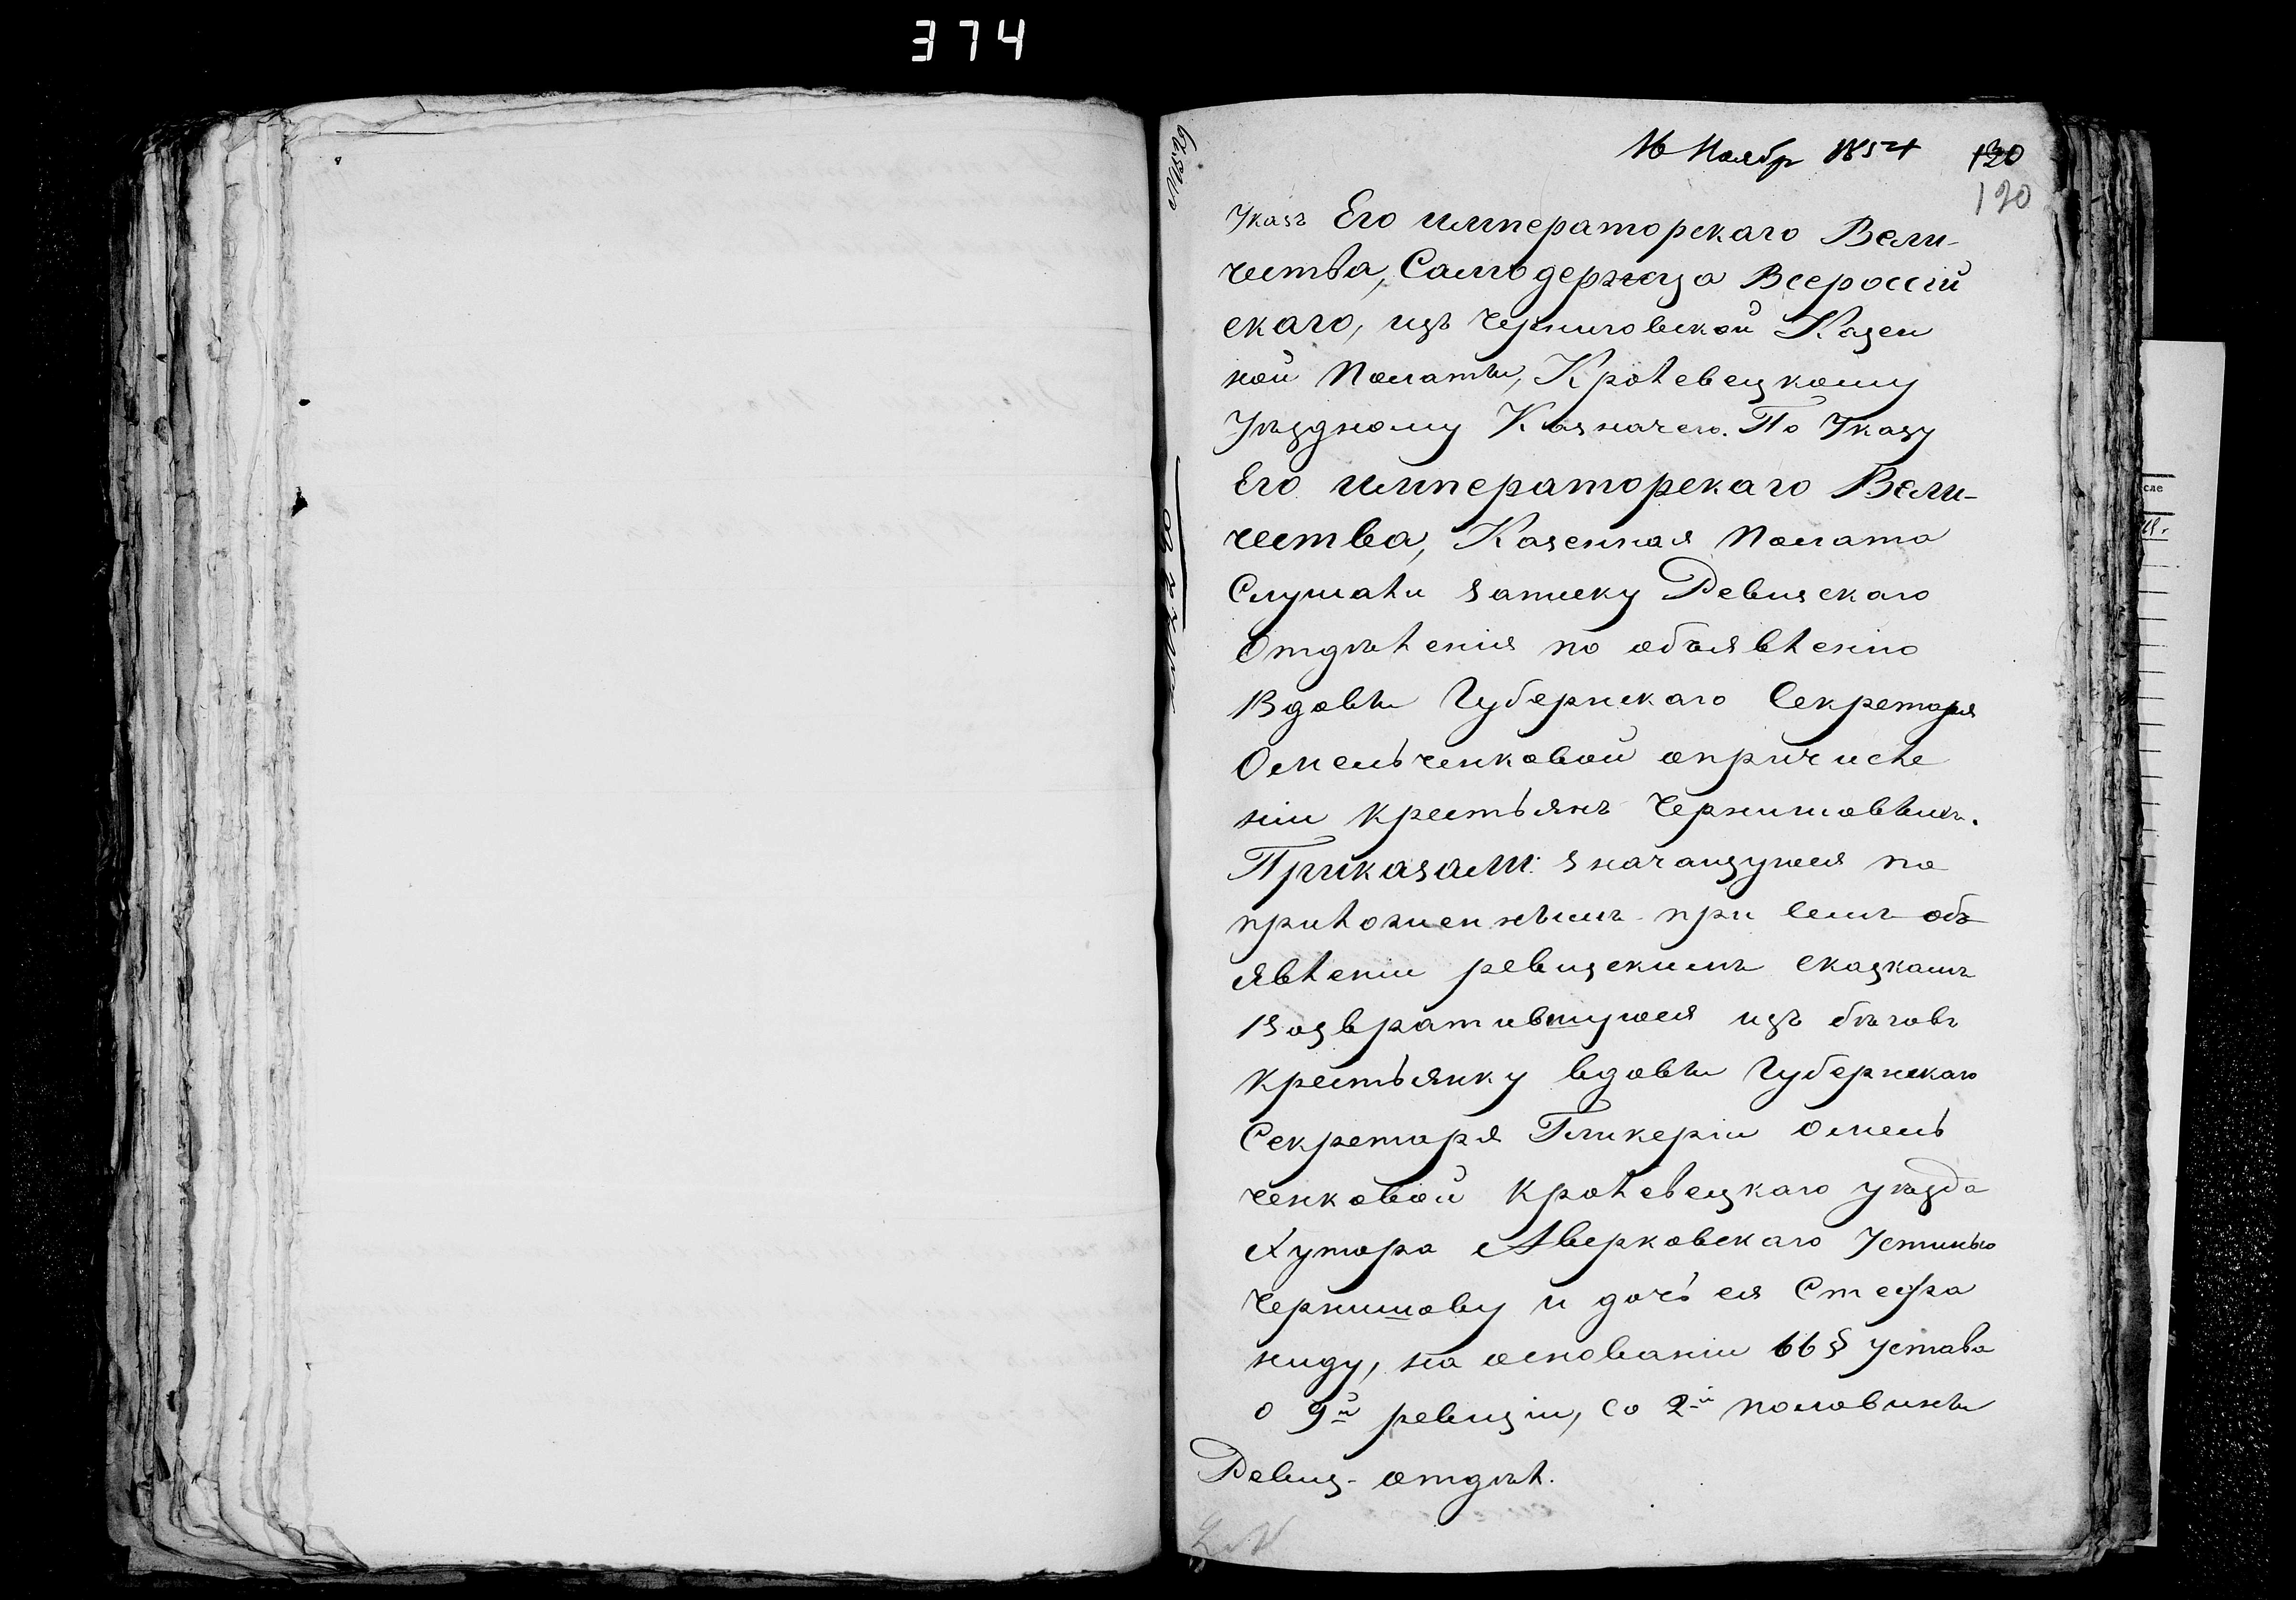 374
16 Ноябр 1854 120
120
Указъ Его Императорскаго Вели-
чества, Самодержца Всероссій
скаго, изъ Черниговской Казен
ной Палаты, Кролевецкому
Уѣздному Казначею. По Указу
Его Императорскаго Вели-
чества, Казенная Палата
Слушали записку Ревизскаго
Отдѣленія по объявленію
Вдовы Губернскаго Секретаря
Омельченковой опричисле
ніи крестьянъ Чернишовыхъ.
Приказали: значащуюся по
приложеннымъ при семъ объ
явленіи ревизскимъ сказкамъ
Возвратившуюся изъ бѣговъ
крестьянку вдовы Губернскаго
Секретаря Гликеріи Омель
ченковой Кролевецкаго уѣзда
Хутора Аверковскаго Устинью
Чернишову и дочь ея Стефа
ниду, на основаніи 66 § Устава
о 9й ревизіи, со 2й половины
Ревиз. отдѣл.
сле